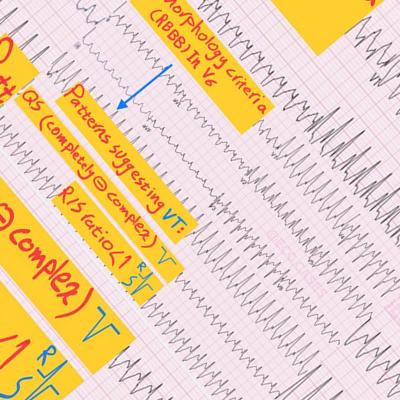 Morphology criteria
(RBBB) In V6
Patterns suggesting VT:
QS (completely ⊖ complex)
R/S ratio <1 R S
⊖ complex)
R
S